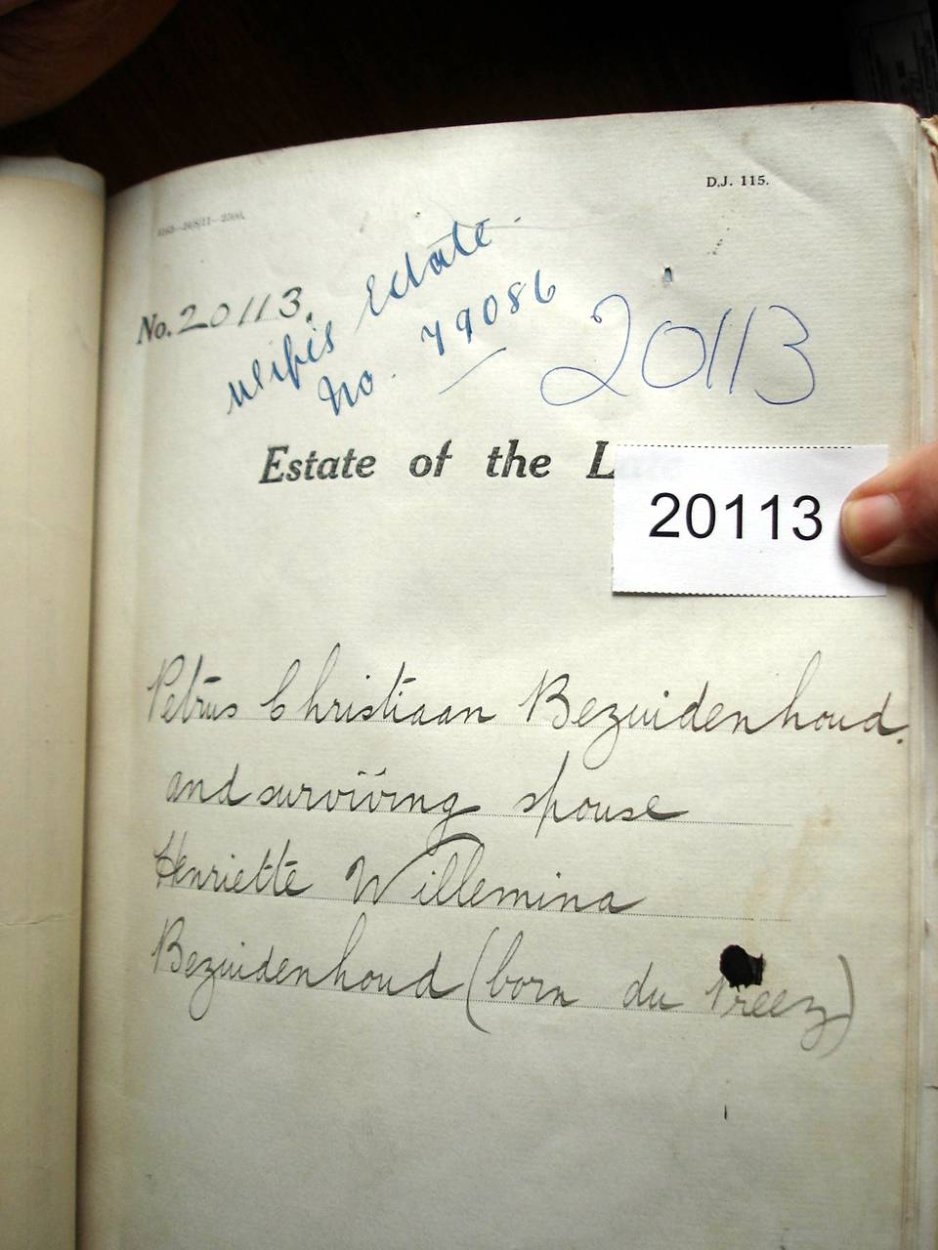 D.J. 115.
No. 20113.
Wife's Estate
No. 79086
20113
Estate of the
20113
Petrus Christiaan Bezuidenhoud.
and surviving spouse
Henriette Willemina
Bezuidenhoud (born du Preez)